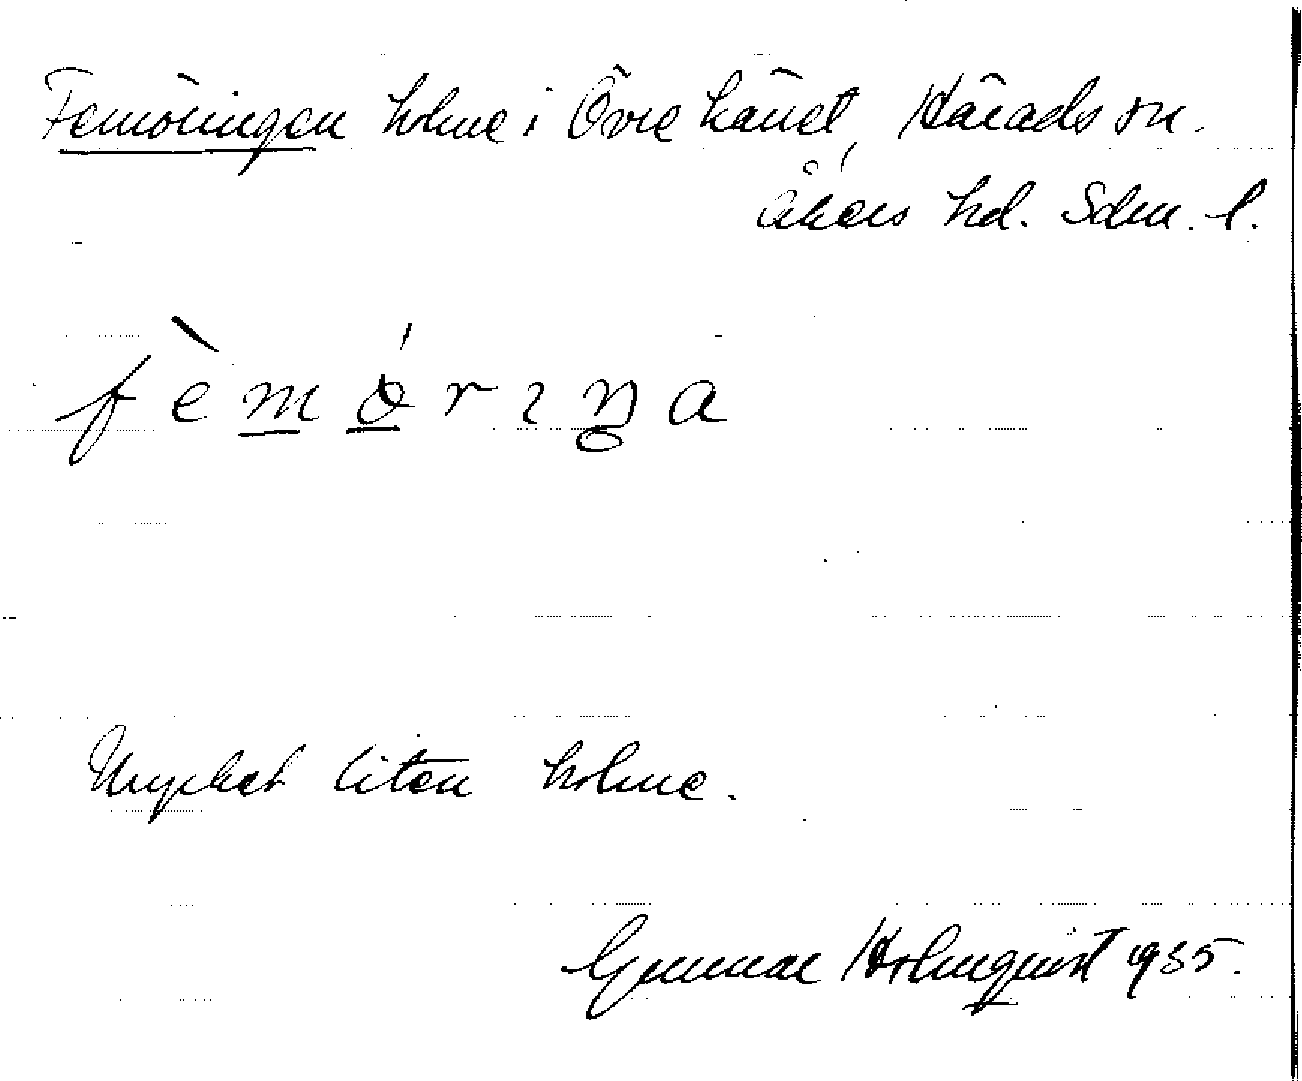 Femöringen holme i Övre hänet, Härads sn.
Åkers hd. Sdm. l.
f è m ǿ r ı ŋ a
Mycket liten holme.
Gunnar Holmquist 1935.